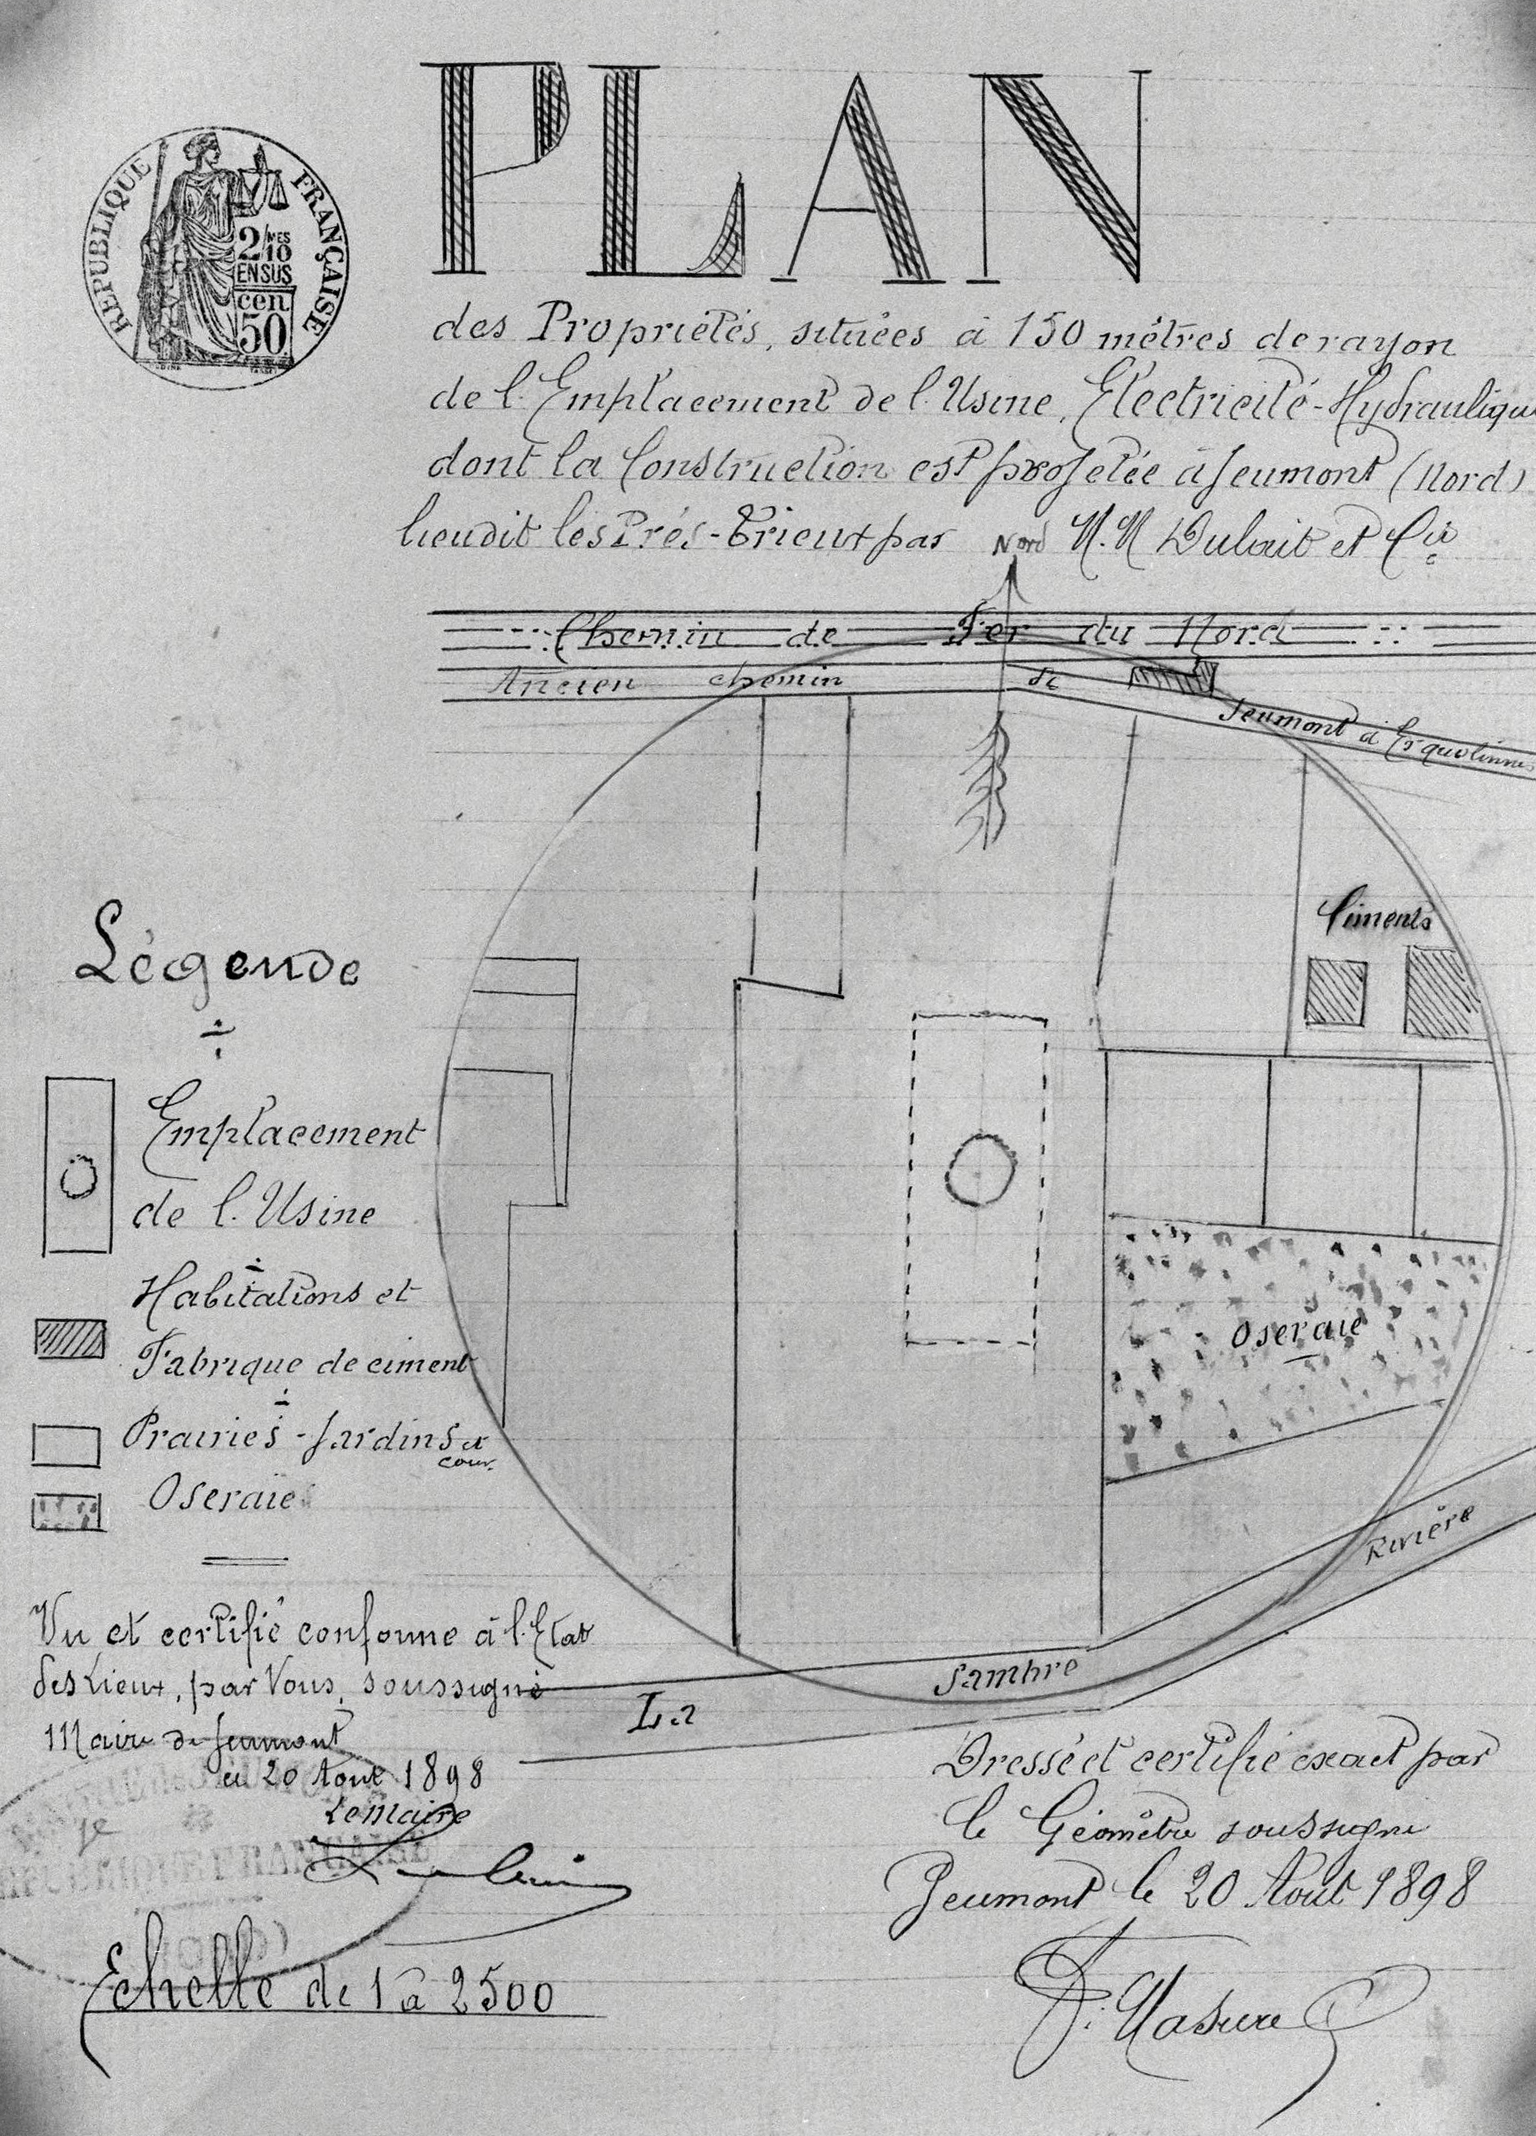 PLAN
RÉPUBLIQUE FRANÇAISE
2/MES 10
EN SUS
cen
50
des Propriétés, situées à 150 mètres de rayon
de l'Emplacement de l'Usine, Electricité-Hydraulique
dont la Construction est projetée à Jeumont (Nord)
lieudit les Prés-Trieux par M.M Dulait et Cie
Nord
Chemin de Fer du Nord
Ancien chemin de Jeumont à Erquelinnes
Ciments
Légende
Emplacement
de l'Usine
Habitations et
Fabrique de ciment
Prairies-Jardins et
cour.
Oseraie
Oseraie
Rivière
La Sambre
Vu et certifié conforme à l'Etat
des Lieux, par Nous, soussigné
Maire de Jeumont
Le 20 Août 1898
Le Maire
Dressé et certifié exact par
le Géomètre soussigné
Jeumont le 20 Août 1898
RÉPUBLIQUE FRANÇAISE
(NORD)
Echelle de 1 à 2500